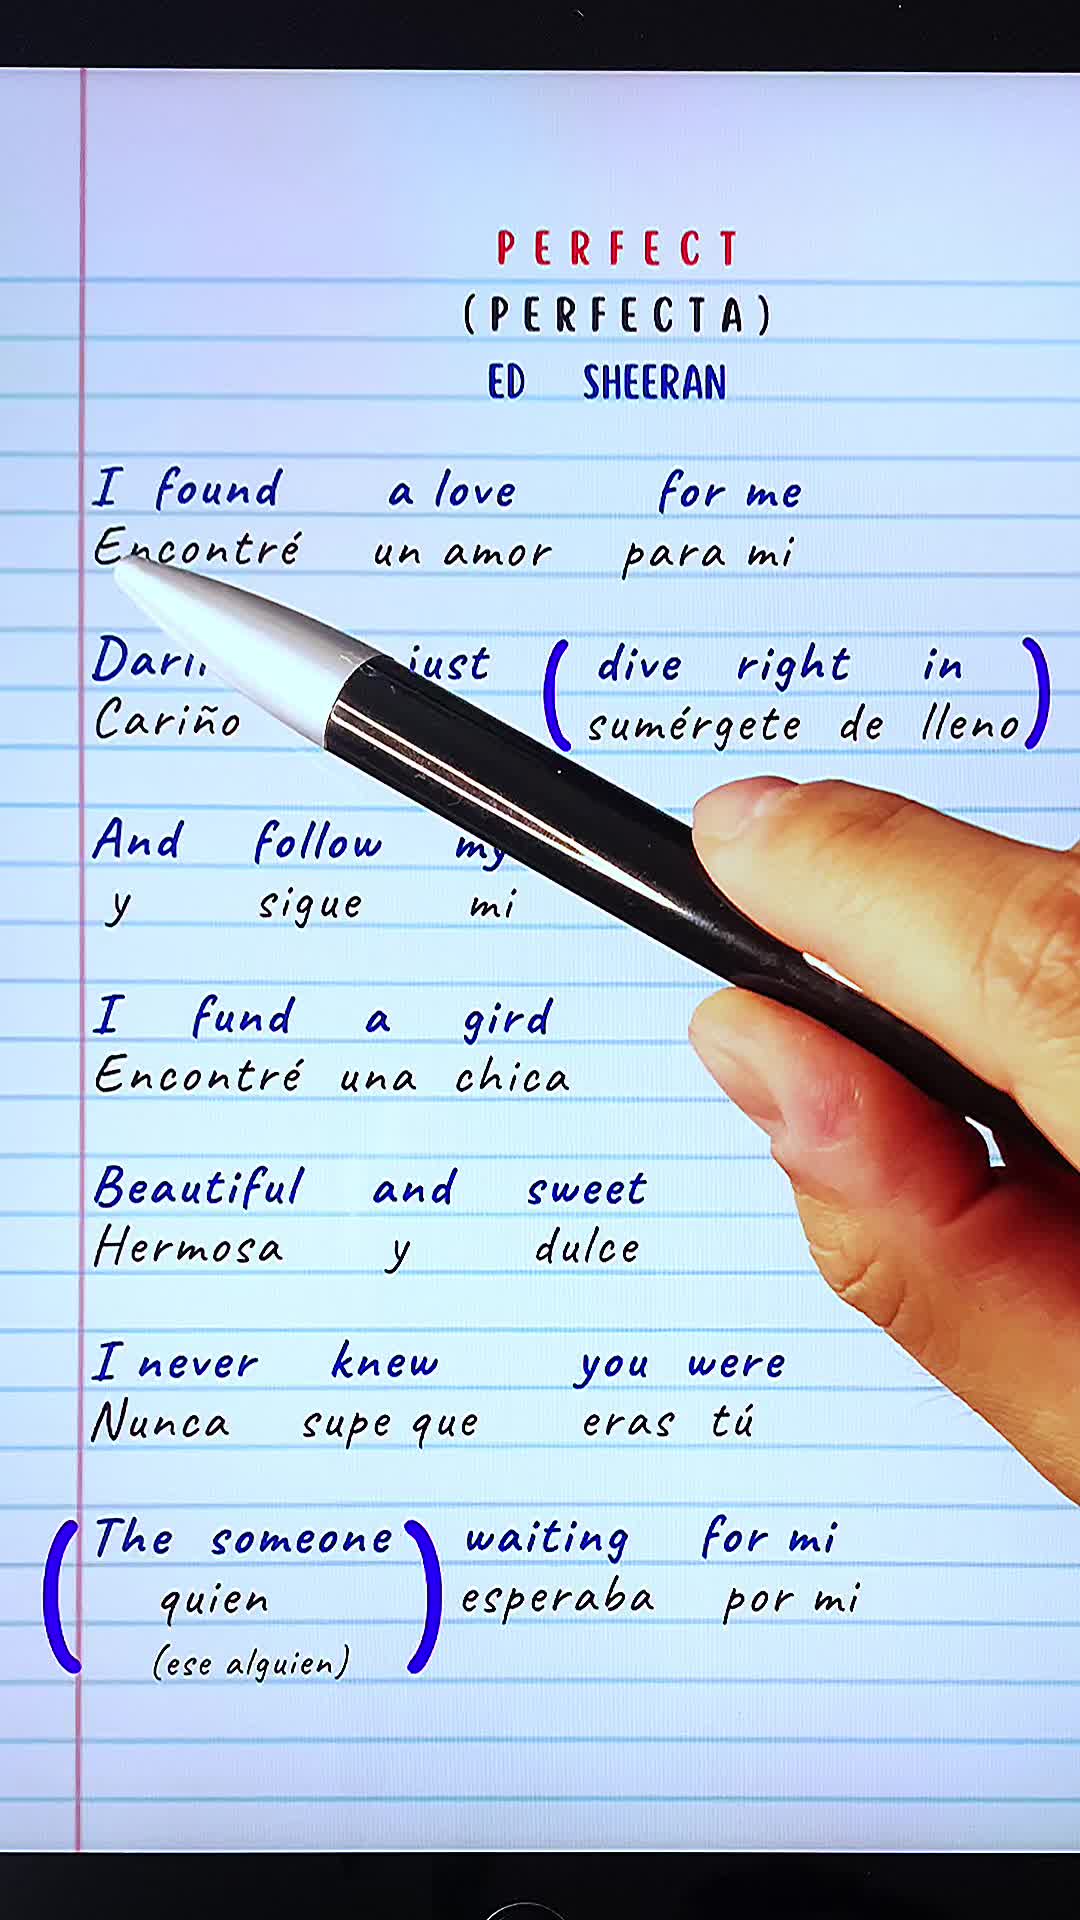 PERFECT
(PERFECTA)
ED SHEERAN
I found a love for me
Encontré un amor para mi
just (dive right in)
Cariño (sumérgete de lleno)
And follow my
y sigue mi
I fund a gird
Encontré una chica
Beautiful and sweet
Hermosa y dulce
I never knew you were
Nunca supe que eras tú
(The someone) waiting for mi
quien esperaba por mi
(ese alguien)